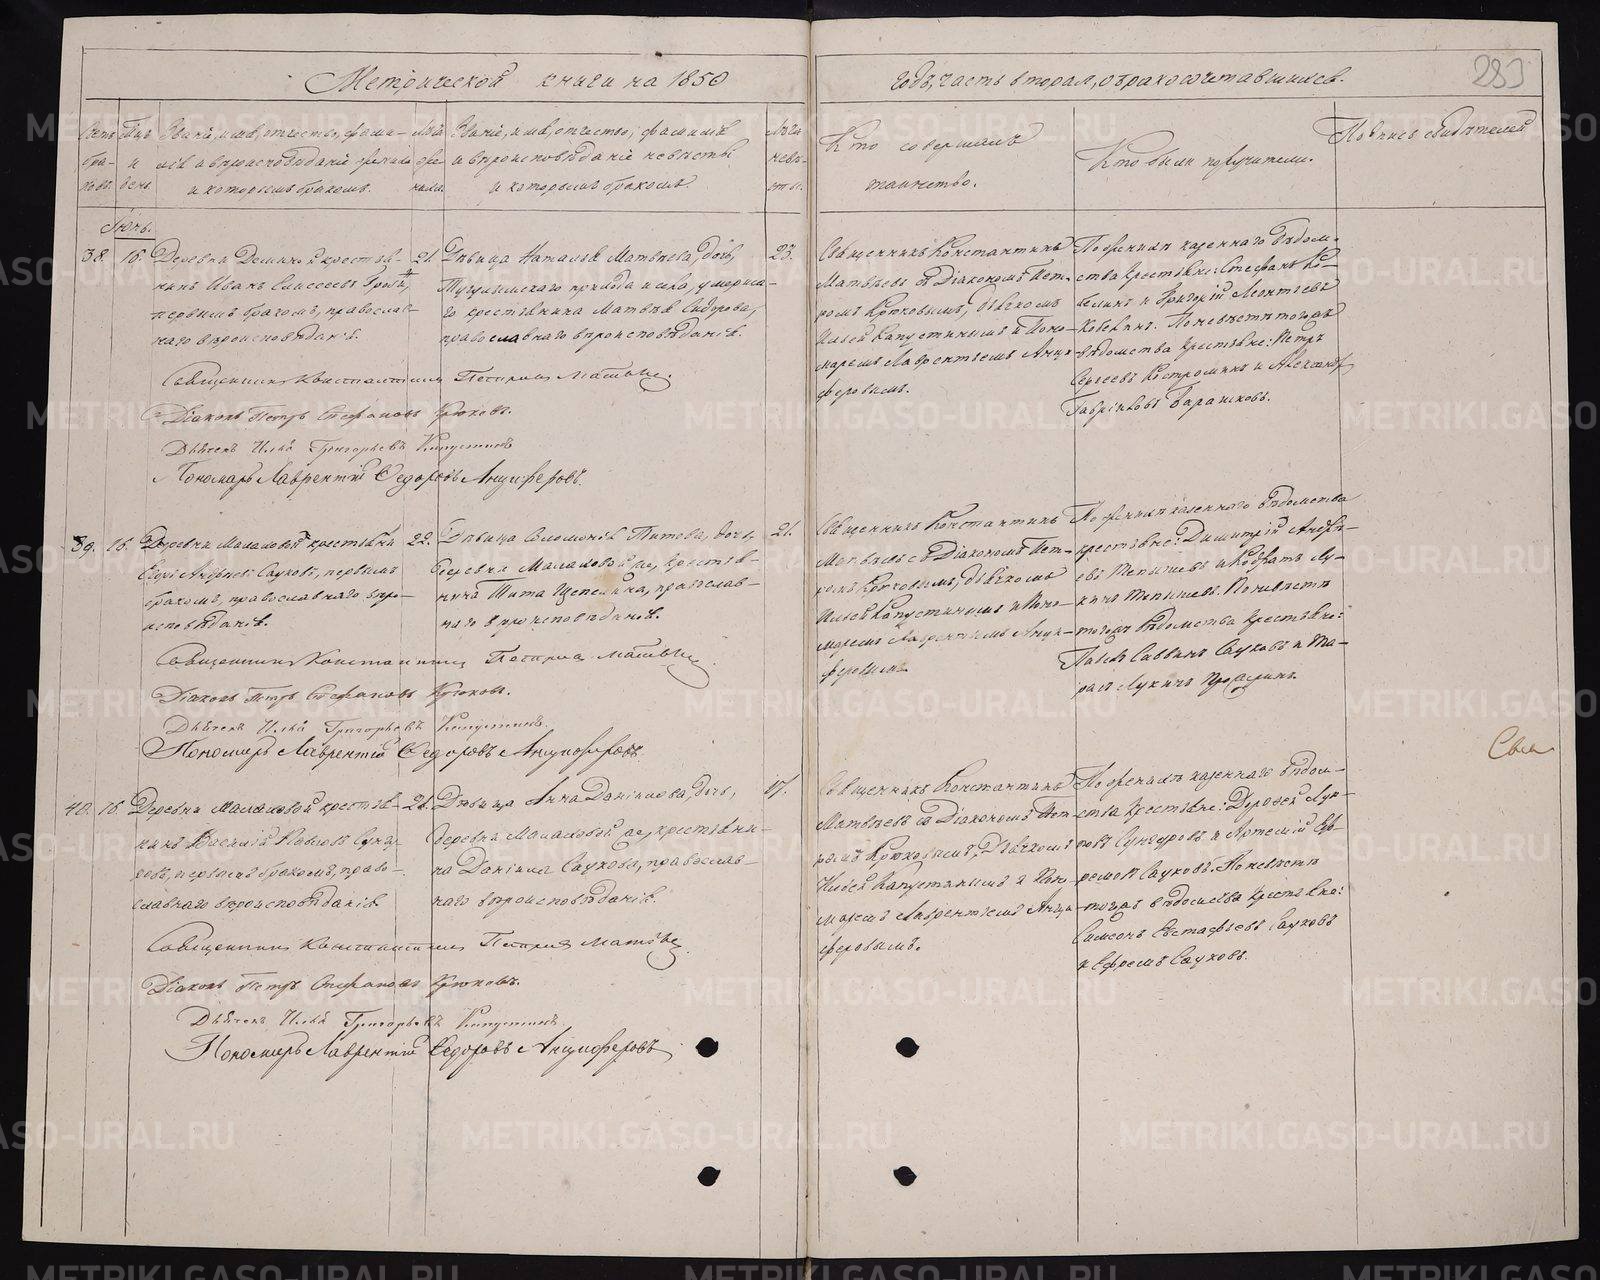 Метрической книги на 1850
годъ, часть вторая, о бракосочетавшихся.
283
Счетъ бра-
ковъ.
Мцъ
и
день.
Званіе, имя, отчество, фами-
лія и вѣроисповѣданіе жениха
и которымъ бракомъ.
Лѣта
же-
ниха.
Званіе, имя, отчество, фамилія
и вѣроисповѣданіе невѣсты
и которымъ бракомъ.
Лѣта
невѣ-
сты.
Кто совершалъ
таинство.
Кто были поручители.
Подпись свидѣтелей
Іюнь.
38. 16.
Деревни крестья-
нинъ Иванъ Елисеевъ
первымъ бракомъ, православ-
наго вѣроисповѣданія.
21.
Дѣвица Наталья Матвѣева, дочь,
прихода и села, умерша-
го крестьянина Матвѣя Сидорова,
православнаго вѣроисповѣданія.
23.
Священникъ Константинъ
Матвѣевъ съ Діакономъ Пет-
ромъ Крюковымъ, дьячкомъ
Ильей Капустинымъ и Поно-
маремъ Лаврентьемъ Анци-
феровымъ.
По женихѣ казеннаго вѣдом-
ства крестьяне: Стефанъ Ко-
белинъ и Григорій Леонтьевъ
Кобелинъ. По невѣстѣ тогожъ
вѣдомства крестьяне: Петръ
Сергеевъ Костроминъ и Александръ
Гавріиловъ Барашковъ.
Священникъ Константинъ Петровъ Матвѣевъ.
Діаконъ Петръ Стефановъ Крюковъ.
Дьячекъ Илья Григорьевъ Капустинъ
Пономарь Лаврентій Федоровъ Анциферовъ.
39. 16.
Деревни Малаховой крестьянинъ
Андреевъ Сауковъ, первымъ
бракомъ, православнаго вѣро-
исповѣданія.
22.
Дѣвица Соломонія Титова, дочь,
деревни Малаховой же, крестья-
нина Тита Щепелина, православ-
наго вѣроисповѣданія.
21.
Священникъ Константинъ
Матвѣевъ съ Діакономъ Пет-
ромъ Крюковымъ, дьячкомъ
Ильей Капустинымъ и Поно-
маремъ Лаврентьемъ Анци-
феровымъ
По женихѣ казеннаго вѣдомства
крестьяне: Димитрій Андрѣ-
евъ и Кодратъ Лу-
кинъ По невѣстѣ
тогожъ вѣдомства крестьяне:
Савинъ Сауковъ и Та-
расъ Лукинъ
Священникъ Константинъ Петровъ Матвѣевъ
Діаконъ Петръ Стефановъ Крюковъ.
Дьячекъ Илья Григорьевъ Капустинъ.
Пономарь Лаврентій Федоровъ Анциферовъ
40. 16.
Деревни Малаховой крестья-
нинъ Василій Павловъ Сунду-
ровъ, первымъ бракомъ, право-
славнаго вѣроисповѣданія
21.
Дѣвица Анна Даніилова, дочь,
деревни Малаховой же, крестьяни-
на Даніила Саукова, православ-
наго вѣроисповѣданія.
17.
Священникъ Константинъ
Матвѣевъ съ Діакономъ Пет-
ромъ Крюковымъ, Дьячкомъ
Ильей Капустинымъ и Поно-
маремъ Лаврентьемъ Анци-
феровымъ.
По женихѣ казеннаго вѣдом-
ства крестьяне: Дорофей Лук-
Сундуровъ и Артемій Еф-
ремовъ Сауковъ. По невѣстѣ
тогожъ вѣдомства крестьяне:
Симеонъ Евстафьевъ Сауковъ
и Ефремъ Сауковъ.
Священникъ Константинъ Петровъ Матвѣевъ
Діаконъ Петръ Стефановъ Крюковъ.
Дьячекъ Илья Григорьевъ Капустинъ
Пономарь Лаврентій Федоровъ Анциферовъ
METRIKI.GASO-URAL.RU